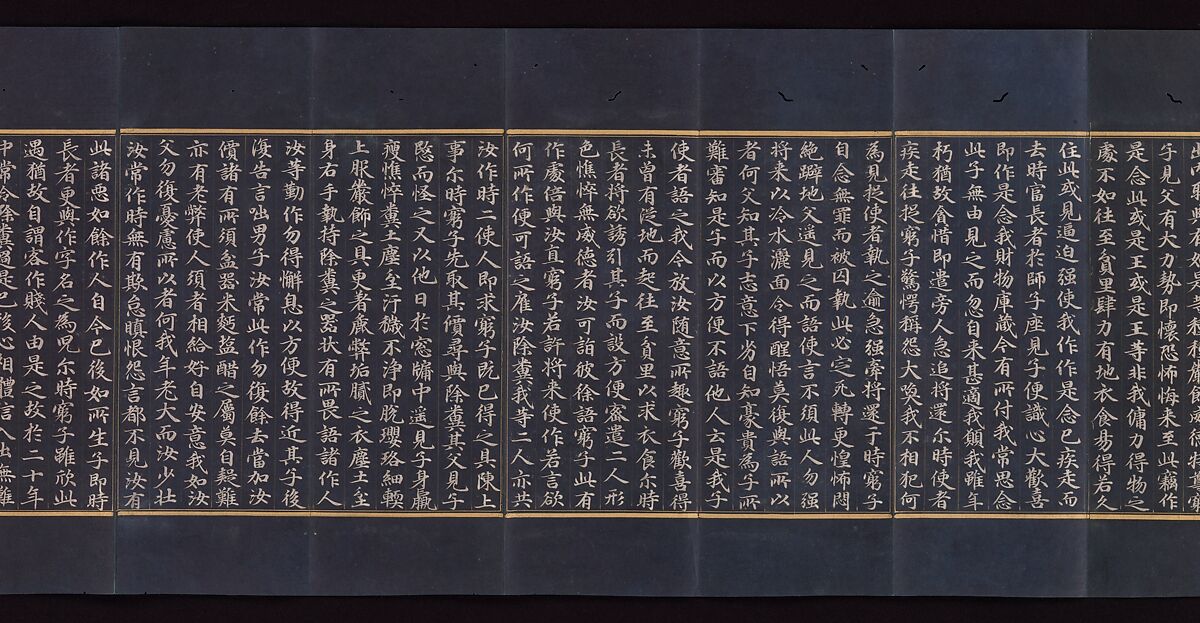 子見父有大力勢即懷恐怖悔来至此竊作
是念此或是王或是王等非我傭力得物之
處不如往至貧里肆力有地衣食易得若久
住此或見逼迫强使我作作是念已疾走而
去時富長者於師子座見子便識心大歡喜
即作是念我財物庫藏今有所付我常思念
此子無由見之而忽自来甚適我願我雖年
朽猶故貪惜即遣旁人急追將還尒時使者
疾走往捉窮子驚愕稱怨大喚我不相犯何
為見捉使者執之逾急强牽將還于時窮子
自念無罪而被囚執此必定死轉更惶怖悶
絶躃地父遥見之而語使言不須此人勿强
將来以冷水灑面令得醒悟莫復與語所以
者何父知其子志意下劣自知豪貴為子所
難審知是子而以方便不語他人云是我子
使者語之我今放汝随意所趣窮子歡喜得
未曾有從地而起往至貧里以求衣食尒時
長者將欲誘引其子而設方便密遣二人形
色憔悴無威德者汝可詣彼徐語窮子此有
作處倍與汝直窮子若許將来使作若言欲
何所作便可語之雇汝除糞我等二人亦共
汝作時二使人即求窮子既已得之具陳上
事尒時窮子先取其價尋與除糞其父見子
愍而怪之又以他日於窓牖中遥見子身羸
瘦憔悴糞土塵坌汙穢不淨即脱瓔珞細軟
上服嚴飾之具更著麁弊垢膩之衣塵土坌
身右手執持除糞之器状有所畏語諸作人
汝等勤作勿得懈息以方便故得近其子後
復告言咄男子汝常此作勿復餘去當加汝
價諸有所須盆器米麪塩醋之属莫自疑難
亦有老弊使人須者相給好自安意我如汝
父勿復憂慮所以者何我年老大而汝少壮
汝常作時無有欺怠瞋恨怨言都不見汝有
此諸惡如餘作人自今已後如所生子即時
長者更與作字名之為兒尒時窮子雖欣此
遇猶故自謂客作賤人由是之故於二十年
中常令除糞過是已後心相體信入出無難